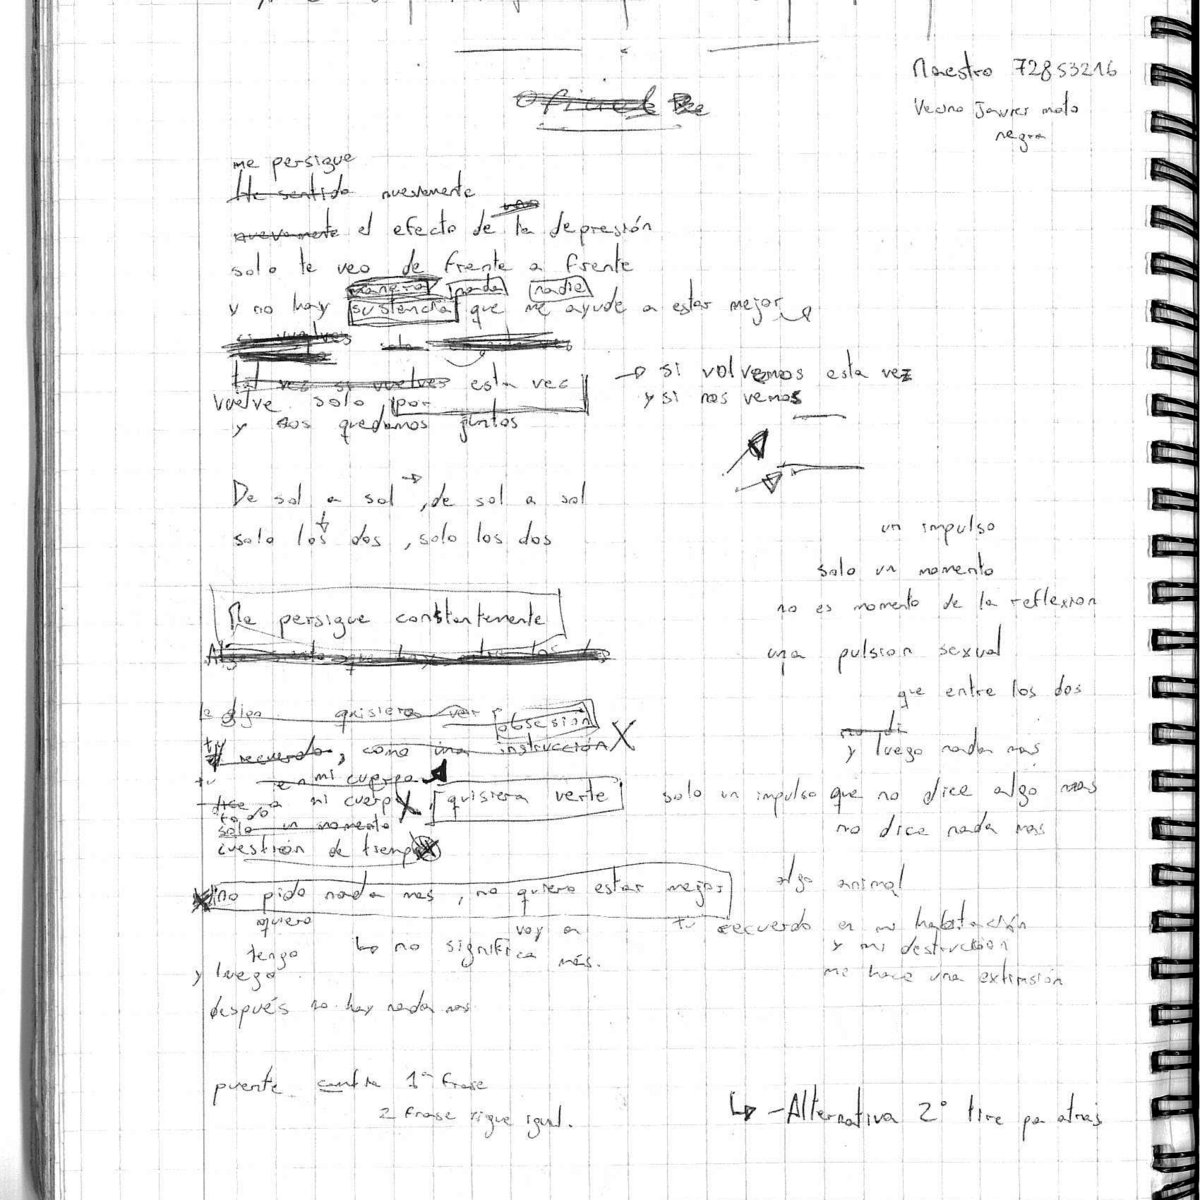 Maestro 72853216
Vecino Javier moto
negra
Oficial
me persigue
He sentido nuevamente
nuevamente el efecto de la depresión
solo te veo de frente a frente
manera nada nadie
y no hay sustancia que me ayude a estar mejor
si vuelves solo
tal vez si vuelves esta vez
vuelve solo por
y nos quedamos juntos
→ si volvemos esta vez
y si nos vemos
De sol a sol →, de sol a sol
solo los dos, solo los dos
Me persigue constantemente
quisiera ver
obsesión
tu recuerdo, como una instrucción X
tu en mi cuerpo
dice a mi cuerpo X quisiera verte
todo
solo un momento
cuestión de tiempo
X no pido nada mas, no quiero estar mejor
quiero voy a
tengo ↳ no significa más.
y luego
después no hay nada mas
puente 1ª frase
2 frase sigue igual.
un impulso
solo un momento
no es momento de la reflexion
una pulsion sexual
que entre los dos
no di
y luego nada mas
solo un impulso que no dice algo mas
no dice nada mas
algo animal
tu recuerdo en mi habitación
y mi destruccion
me hace una extensión
↳ - Alternativa 2° tire pa atrás